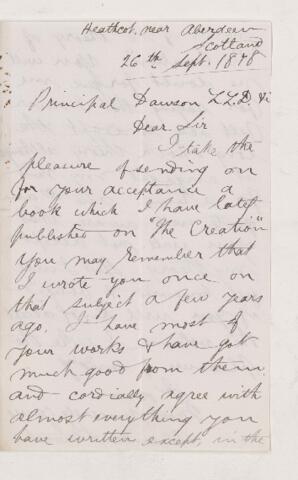 Heathcot, near Aberdeen
Scotland
26th Sept. 1878
Principal Dawson LL.D. &c
Dear Sir
I take the
pleasure of sending on
for your acceptance a
book which I have lately
published on "The Creation"
You may remember that
I wrote you once on
that subject a few years
ago. I have most of
your works & have got
much good from them
and cordially agree with
almost everything you
have written except, in the